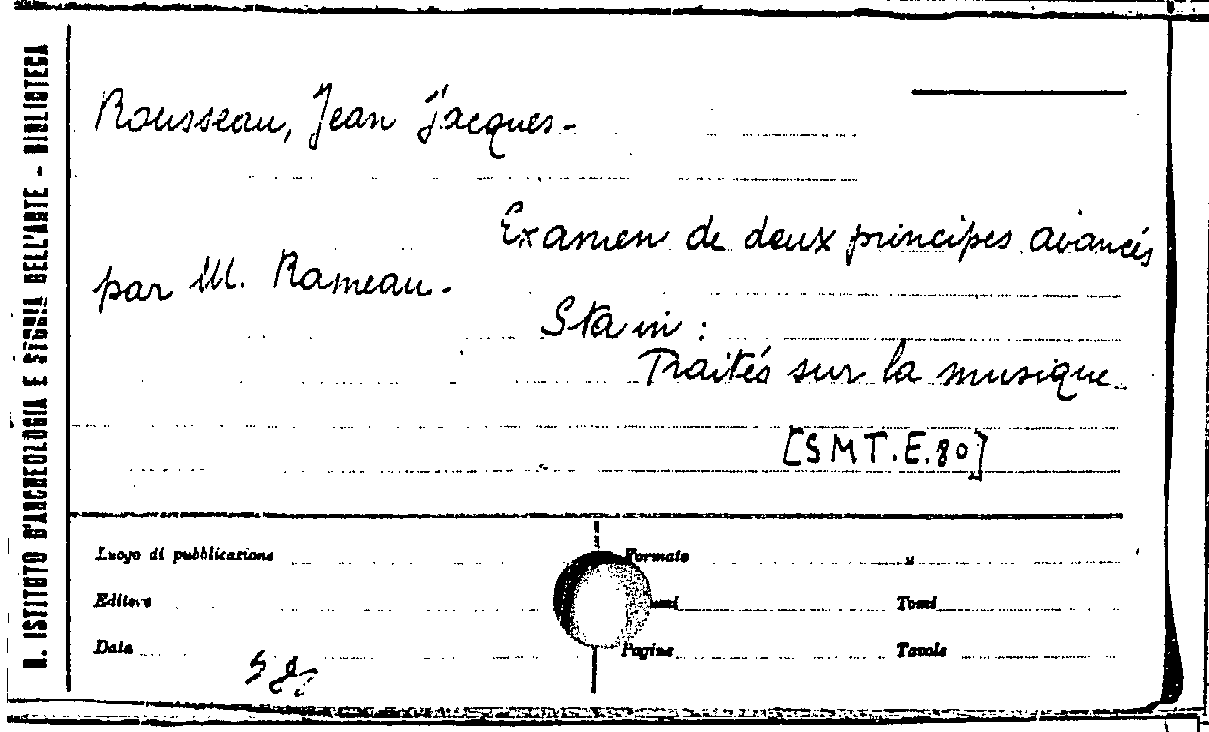 R. ISTITUTO D'ARCHEOLOGIA E STORIA DELL'ARTE - BIBLIOTECA
Rousseau, Jean Jacques -
Examen de deux principes avancés
par M. Rameau.
Sta in:
Traités sur la musique.
[SMT.E.80]
Luogo di pubblicazione
Formato
x
Editore
Tomi
Data
Pagine
Tavole